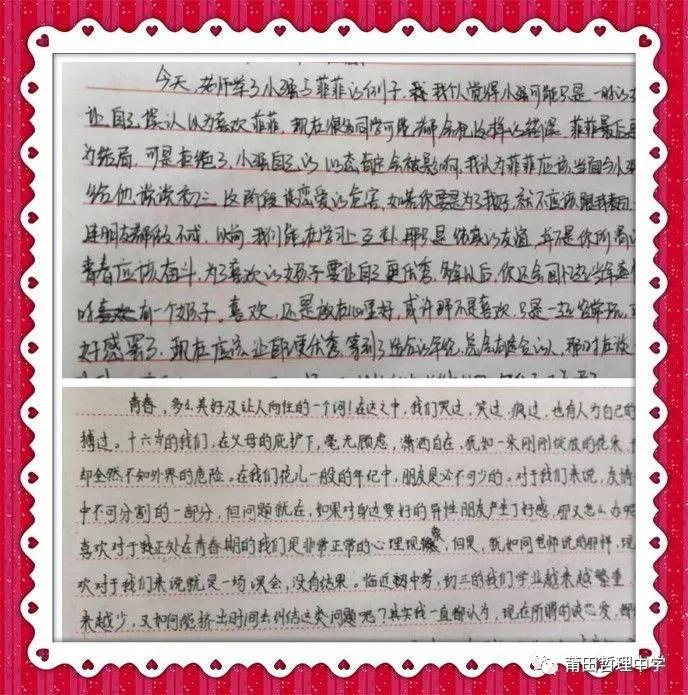 今天,老师举了小强与菲菲的例子,我 我个人觉得小强可能只是一时的
让自己误认以为喜欢菲菲,现在很多同学可能都会犯这样的错误,菲菲最后
为结局,可是拒绝了,小强自己的心态肯定会被影响,我认为菲菲应该当面今小
给他谈谈初三这阶段谈恋爱的危害,如若你要是为了我好,就不应该
连朋友都做不成,以前,我们能在学习上互补,那只是纯真的友谊,并不是你所
青春应该奋斗,为了喜欢的女孩子要让自己更优秀,多年以后,你还会回忆起当年
时喜欢有一个女孩子。喜欢,还是放在心里好,或许那不是喜欢,只是一起经常玩,
好感罢了,现在应该让自己更优秀,等到了适合的年纪,总会有适合的人,那时
青春,多么美好及让人向往的一个词!在这之中,我们哭过,笑过,疯过,也有人为自己的
搏过。十六岁的我们,在父母的庇护下,毫无顾虑,潇洒自在,犹如一朵刚刚绽放的花朵,
却全然不知外界的危险。在我们花儿一般的年纪中,朋友是必不可少的。对于我们来说,友情
中不可分割的一部分,但问题就在,如果对身边要好的异性朋友产生了好感,那又怎么办呢
喜欢对于我正处在青春期的我们是非常正常的心理现象,但是,就如同老师说的那样,现
欢对于我们来说就是一场误会,没有结果。临近期中考,初三的我们学业越来越繁重,
来越少,又如何能挤出时间去纠结这类问题呢?其实我一直都认为,现在所谓的谈恋爱,都
莆田哲理中学